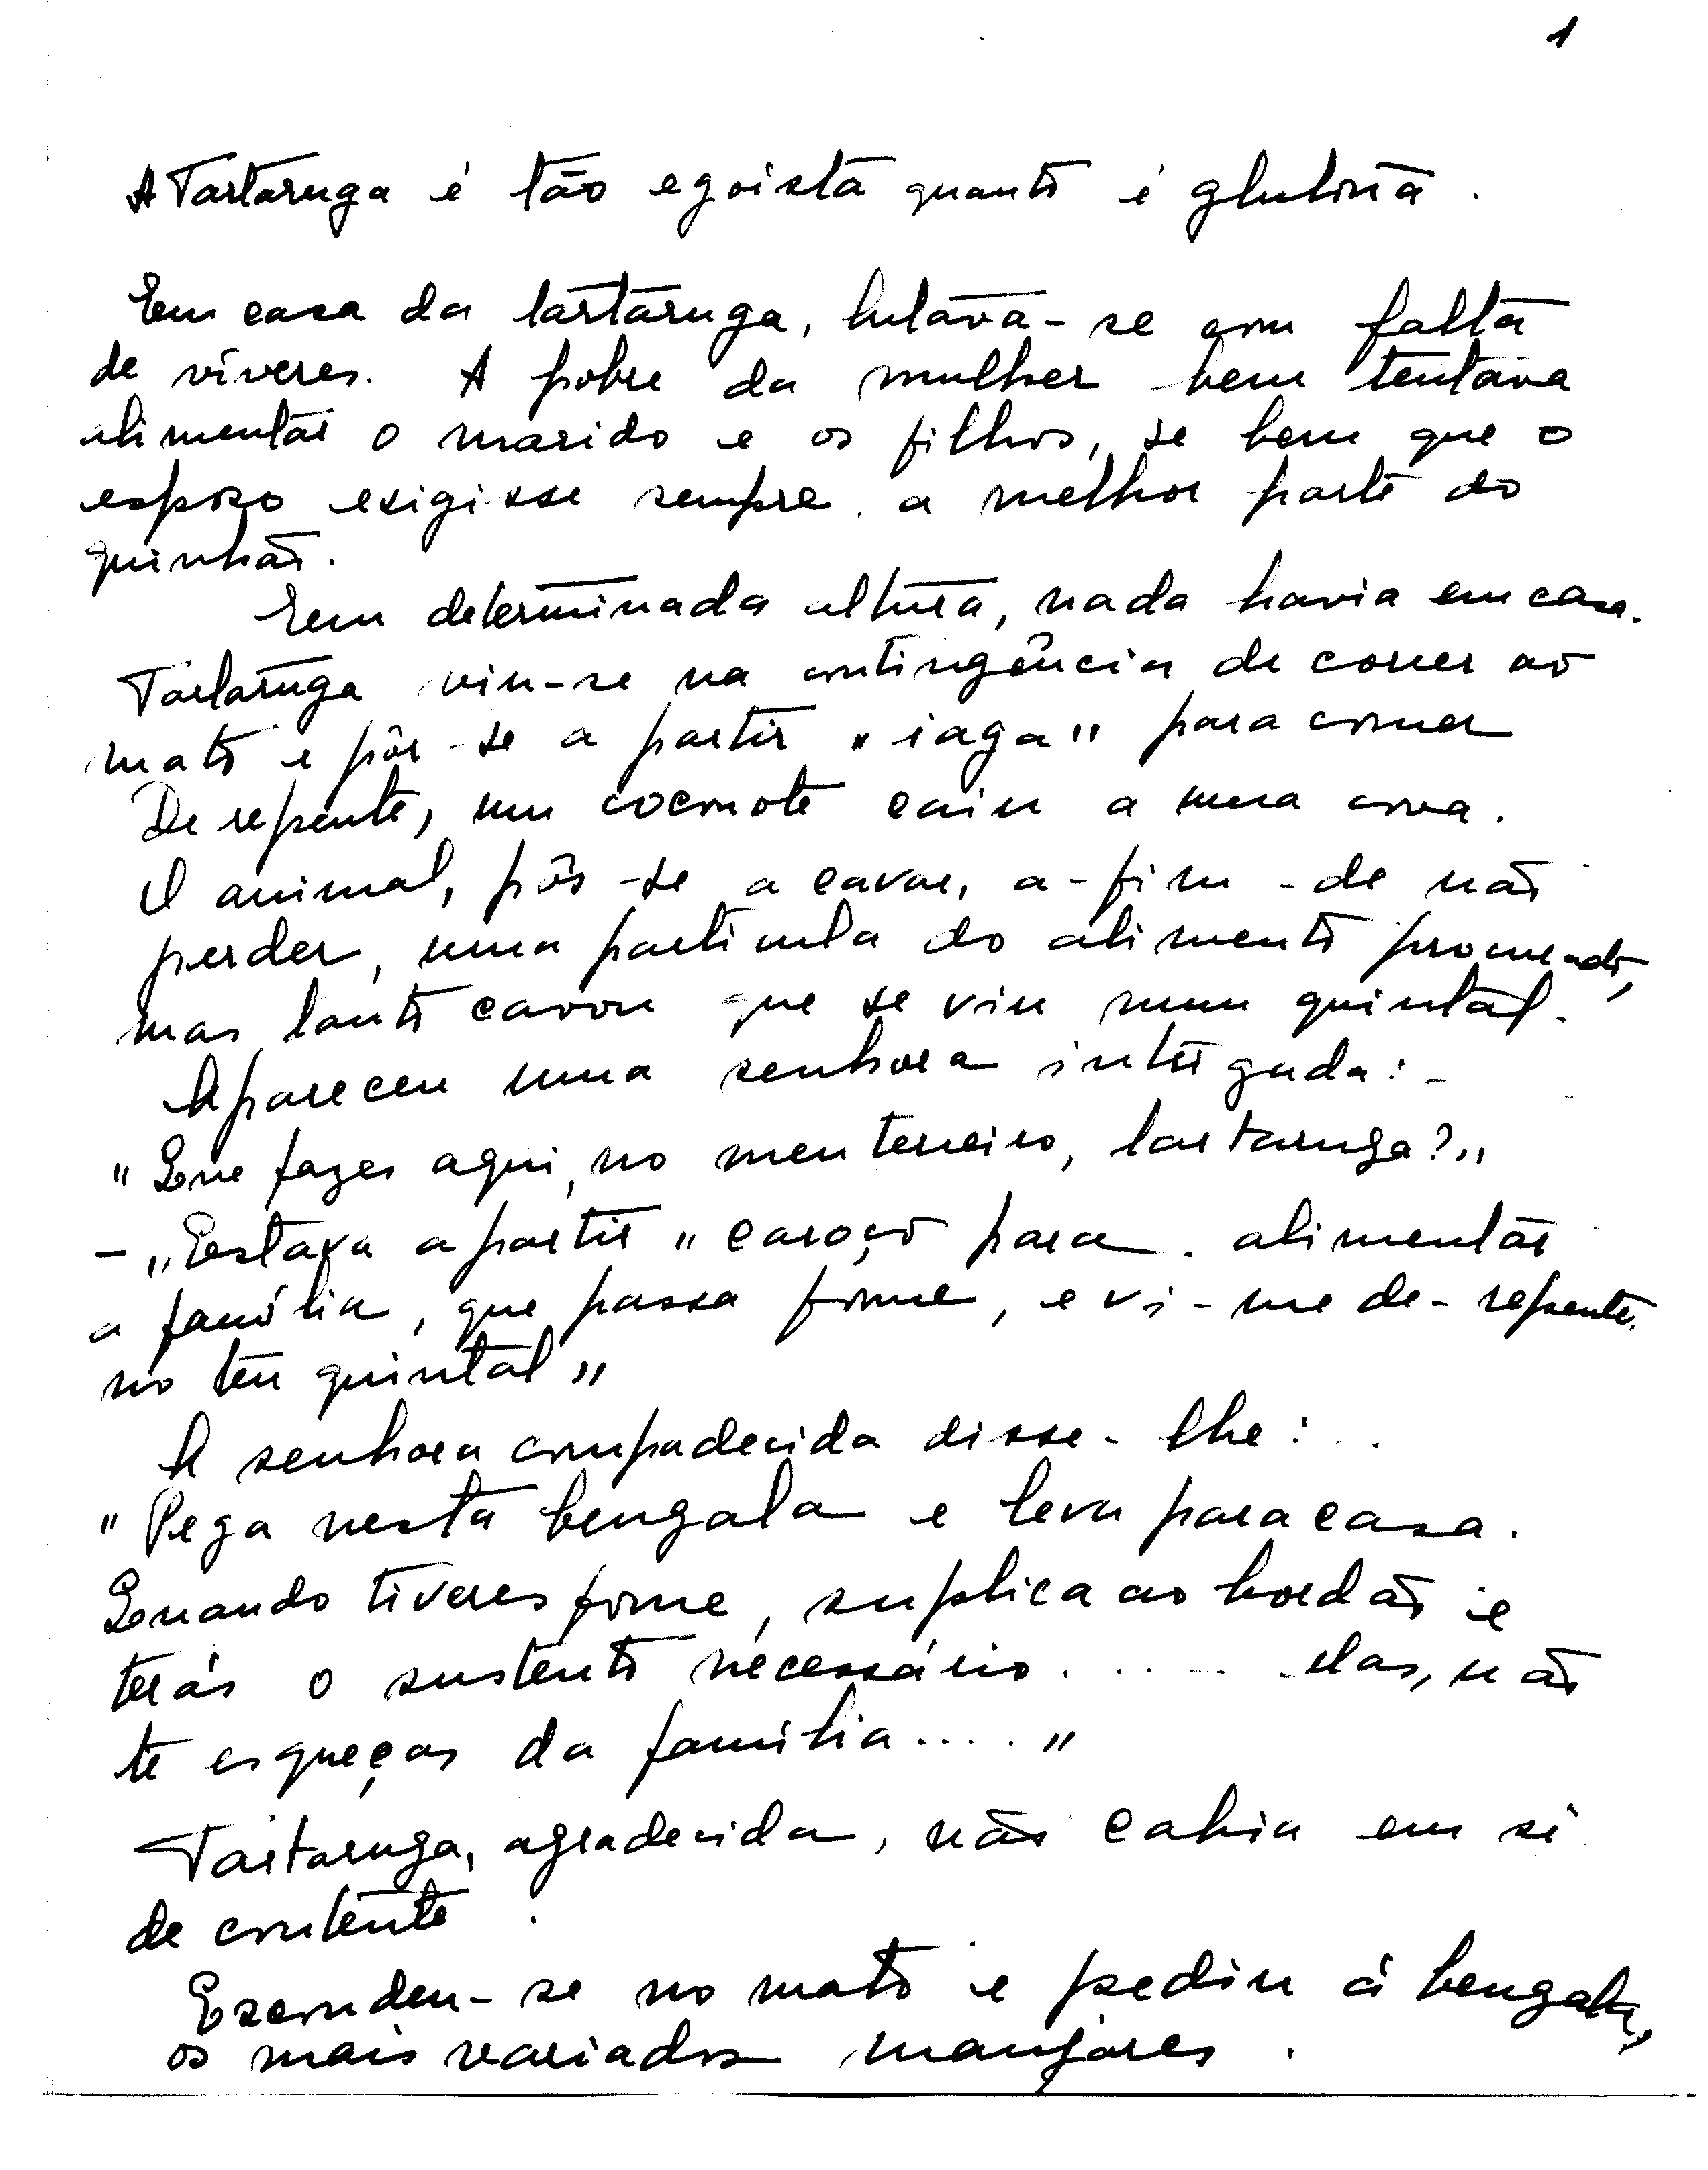 1
A Tartaruga é tão egoista quanto é glutona.
Em casa da tartaruga, lutava-se com falta
de víveres. A pobre da mulher bem tentava
alimentar o marido e os filhos, se bem que o
esposo exigisse sempre a melhor parte do
quinhão.
Em determinada altura, nada havia em casa.
Tartaruga viu-se na contingência de correr ao
mato e pôr-se a partir "iaga" para comer
De repente, um coconote caiu a uma cova.
O animal, pôs-se a cavar, a-fim-de não
perder, uma particula do alimento procurado,
mas tanto cavou que se viu num quintal.
Apareceu uma senhora intrigada:-
"Que fazes aqui, no meu terreiro, tartaruga?"
- "Estava a partir "caroço para alimentar
a família, que passa fome, e vi-me de-repente
no teu quintal"
A senhora compadecida disse-lhe:..
"Pega nesta bengala e leva para casa.
Quando tiveres fome, suplica ao bordão e
terás o sustento necessário..... Mas, não
te esqueças da família...."
Tartaruga, agradecida, não cabia em si
de contente.
Escondeu-se no mato e pediu à bengala,
os mais variados manjares.